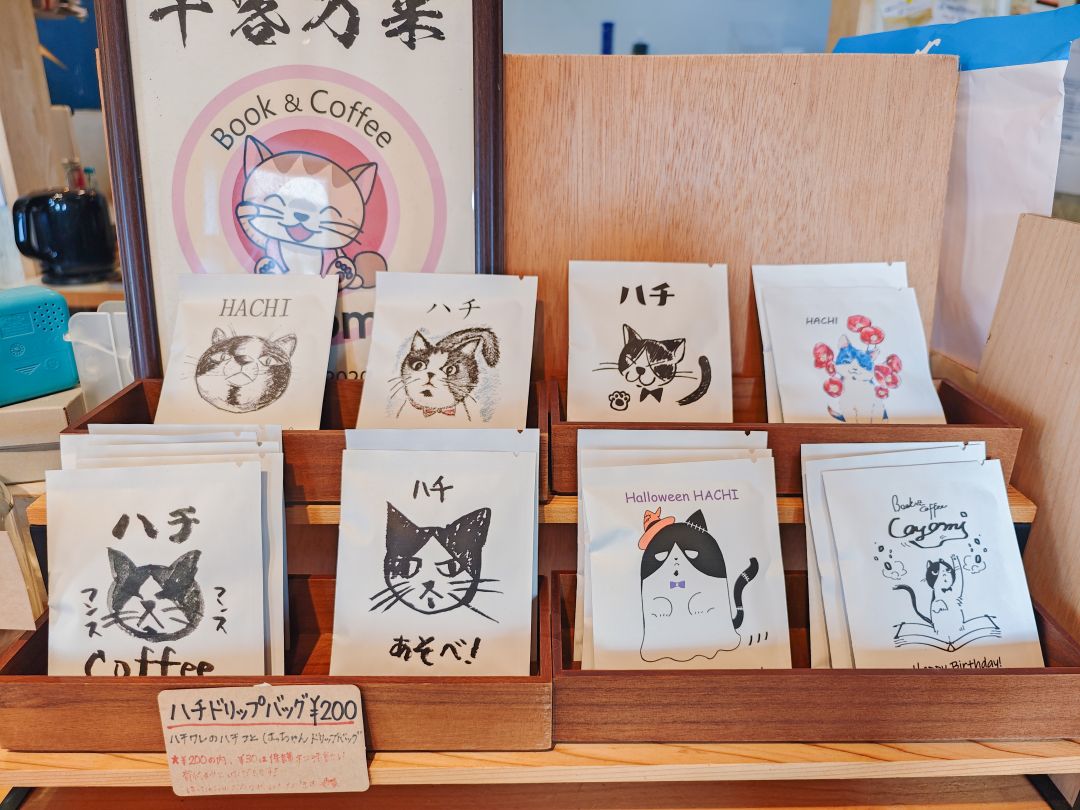 千客万来
Book & Coffee
HACHI
ハチ
ハチ
HACHI
ハチ
フンス
フンス
Coffee
ハチ
あそべ!
Halloween HACHI
Book & Coffee
Cayomi
Happy Birthday!
ハチドリップバッグ¥200
ハチワレのハチってこはっちゃんドリップバッグ
★¥200の内、¥30は保護